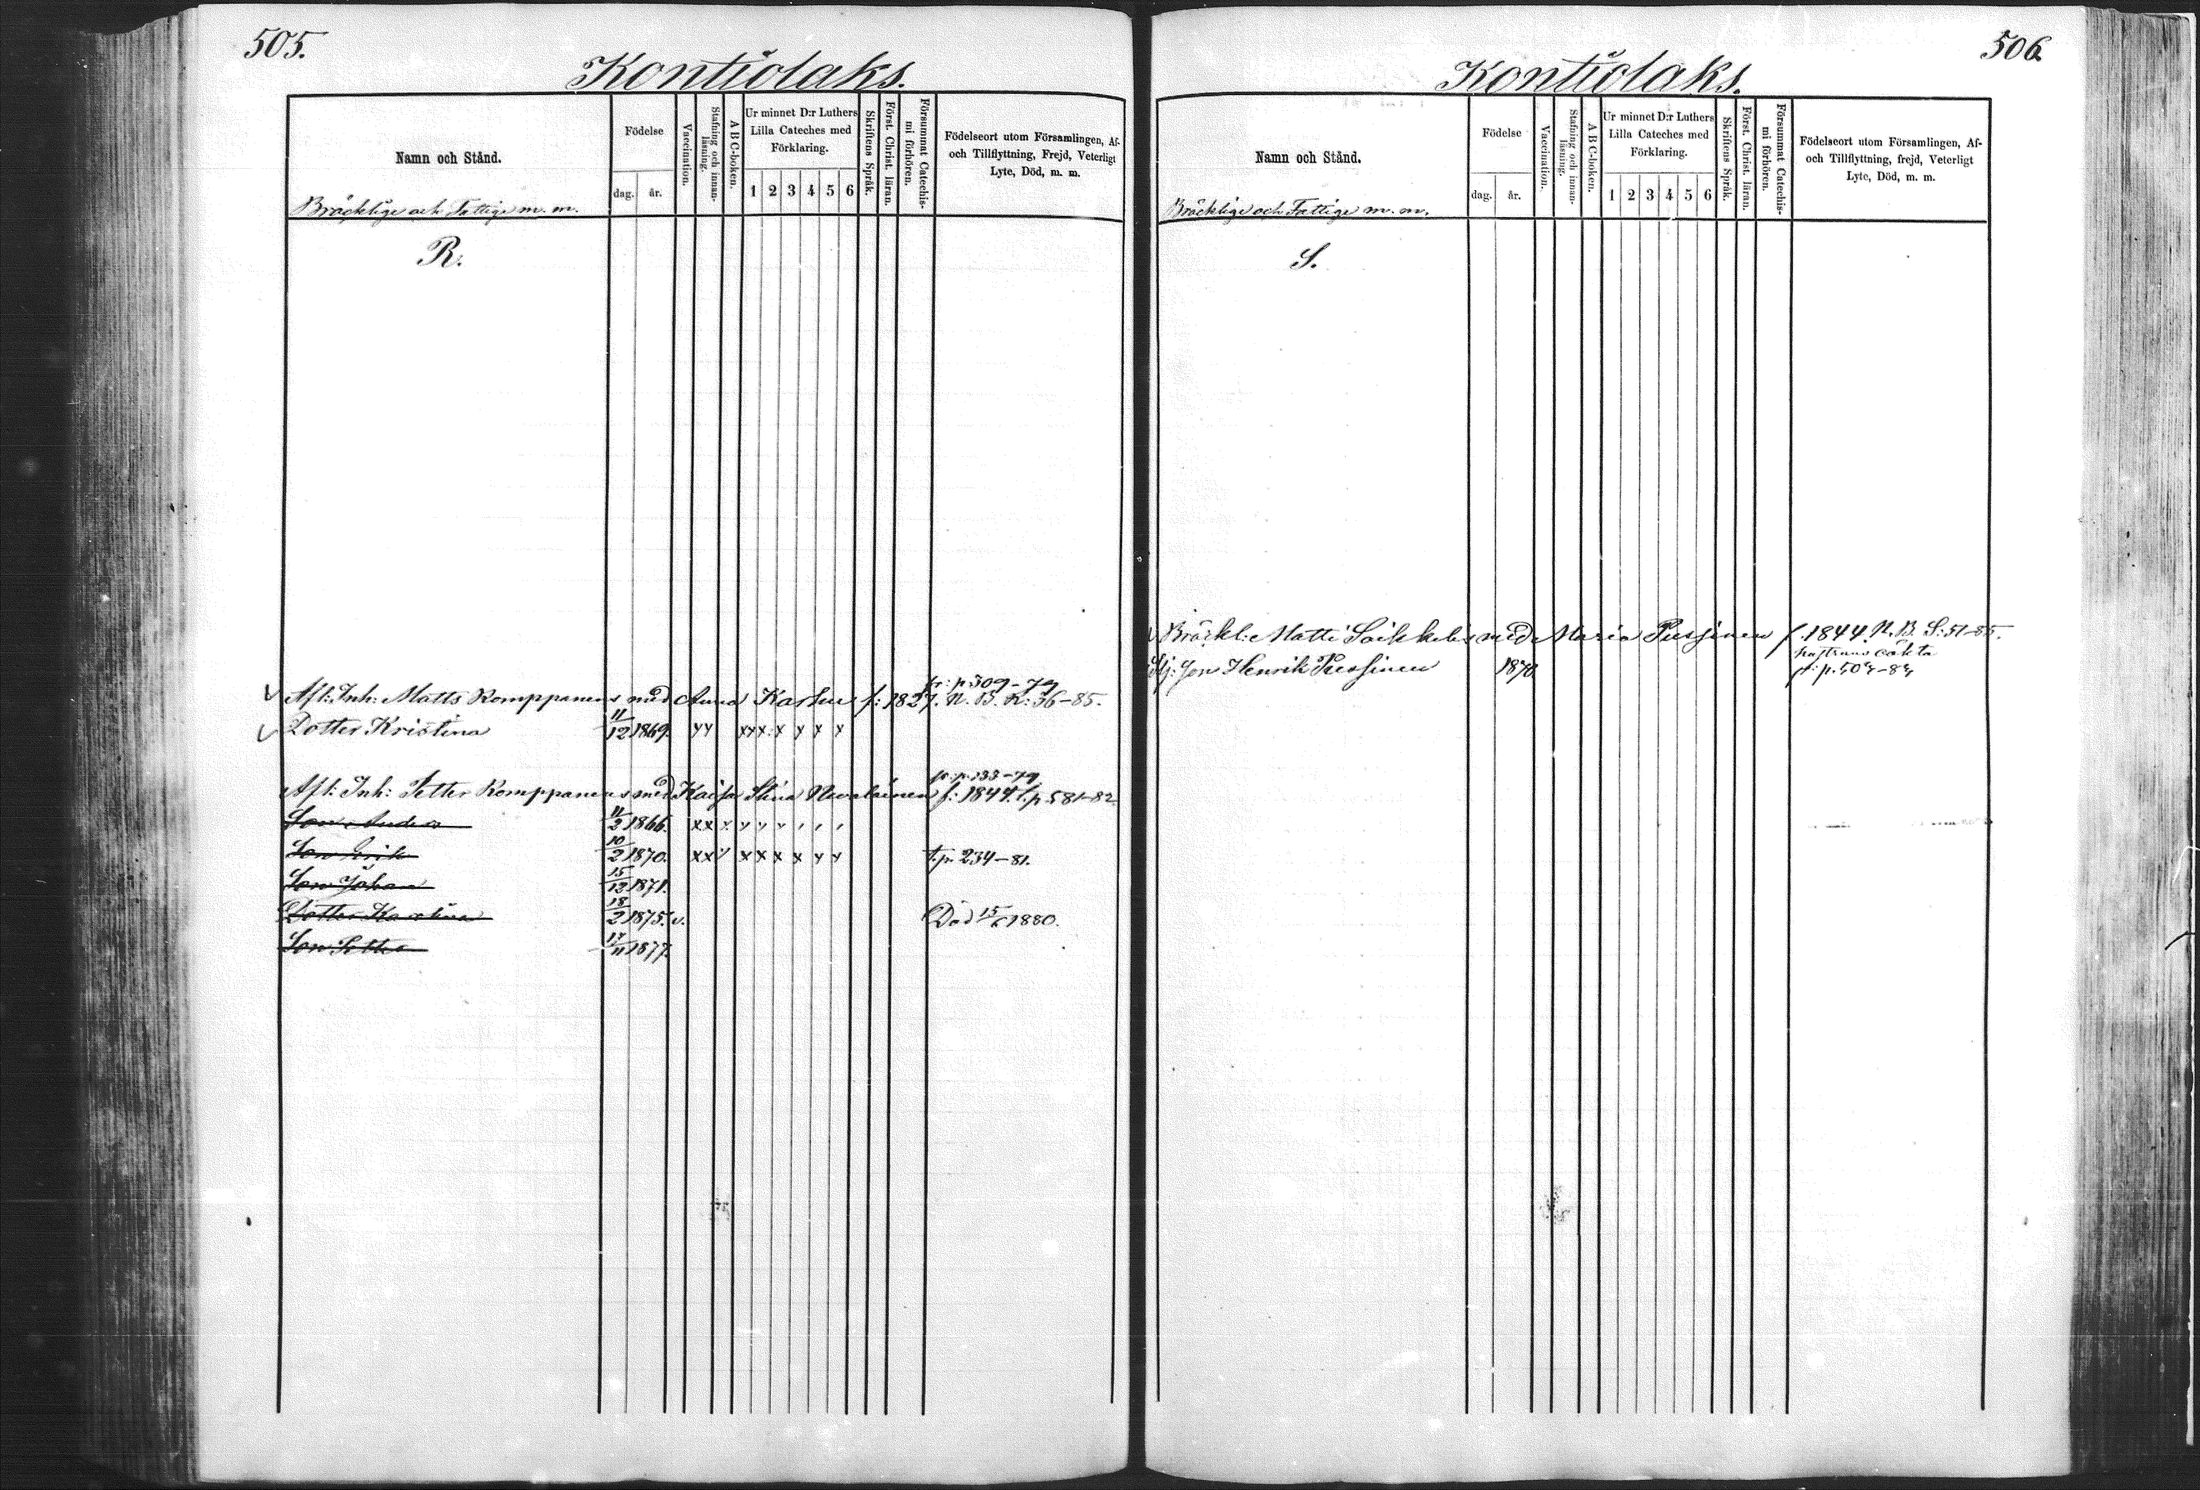 505.
Kontiolaks.
Namn och Stånd.
Bräcklige och Fattige m. m.
Födelse
dag. år.
Vaccination.
Stafning och innan-läsning.
A B C-boken.
Ur minnet D:r Luthers
Lilla Cateches med
Förklaring.
1 2 3 4 5 6
Skriftens Språk.
Först. Christ. läran.
Försummat Catechis-mi förhören.
Födelseort utom Församlingen, Af-
och Tillflyttning, Frejd, Veterligt
Lyte, Död, m. m.
R.
fr: p 309-79
Afl: Inh: Matts Romppanens med Anna Karhu f: 1827. N. B. R: 36-85.
Dotter Kristina 11/12 1869.
fr: p. 133-79
Afl: Inh: Petter Romppanens med Kaisa Stina Nevalainen f: 1844. t. p 581-82
Son Anders 11/2 1866.
Son Erik 10/2 1870. t. p. 234-81.
Son Johan 15/12 1871.
Dotter Karolina 18/2 1875. v. Död 15/5 1880.
Son Petter 17/11 1877.
506.
Kontiolaks.
Namn och Stånd.
Bräcklige och Fattige m. m.
Födelse
dag. år.
Vaccination.
Stafning och innan-läsning.
A B C-boken.
Ur minnet D:r Luthers
Lilla Cateches med
Förklaring.
1 2 3 4 5 6
Skriftens Språk.
Först. Christ. läran.
Försummat Catechis-mi förhören.
Födelseort utom Församlingen, Af-
och Tillflyttning, frejd, Veterligt
Lyte, Död, m. m.
S.
Bräckl: Matti Saikkelis med Maria Pussinen f. 1844. N. B. S: 51-85.
Son Henrik Pussinen 1870.